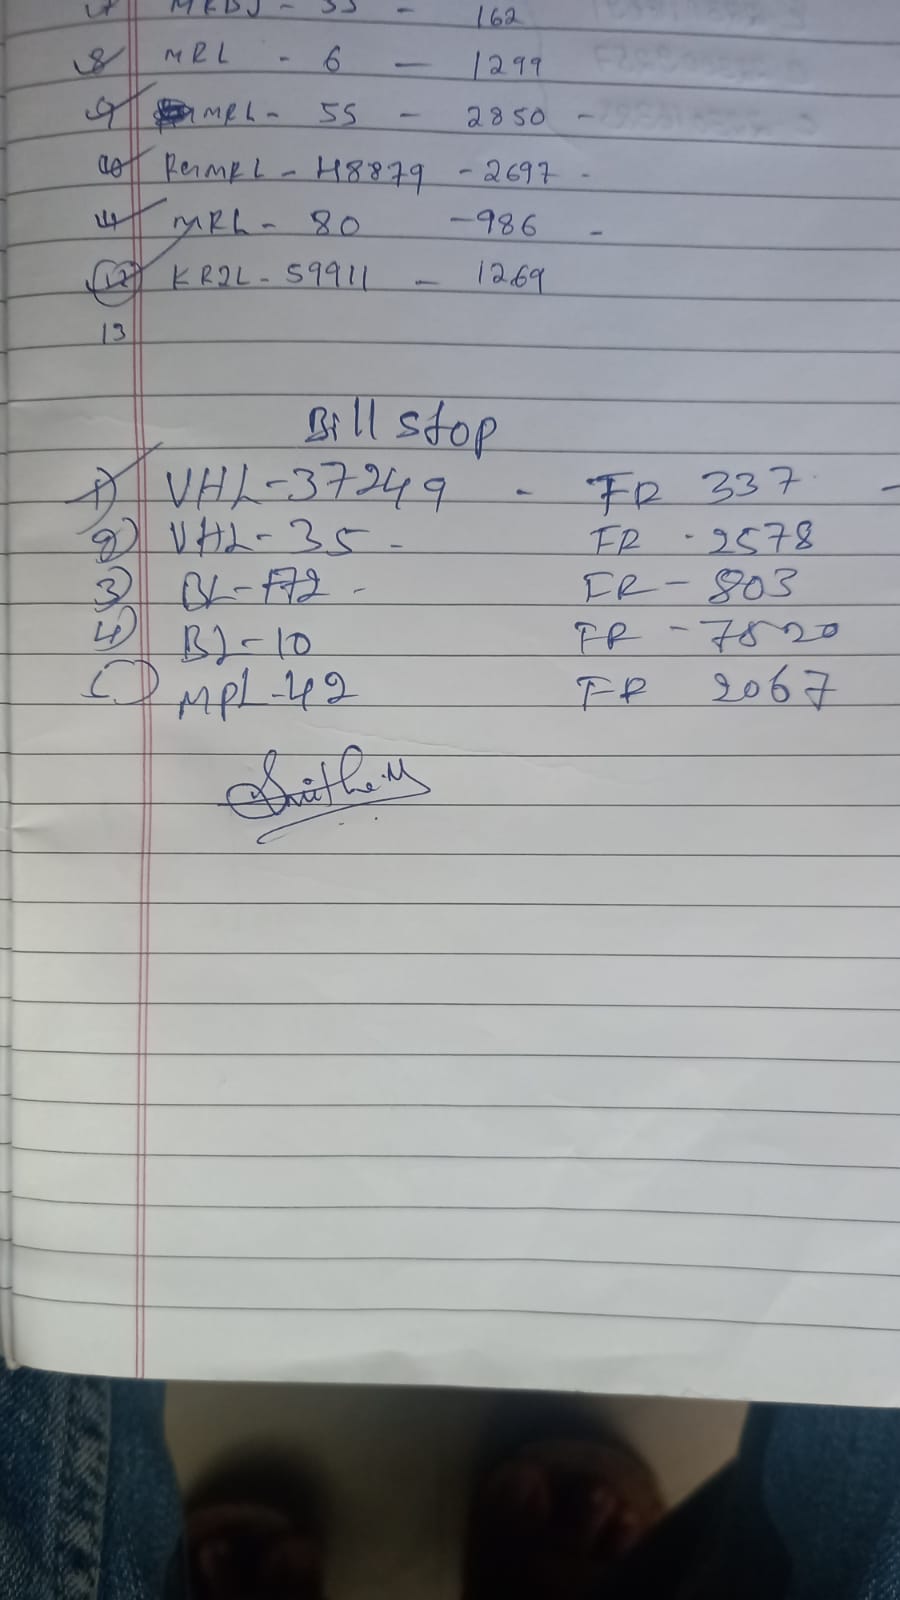 162
8) MRL - 6 - 1299
9) MRL - 55 - 2850 -
10) RerMRL - H8879 - 2697 -
11) MRL - 80 - 986 -
12) KR2L - 59911 - 1269
13
Bill stop
1) VHL - 37249 - FR 337 -
2) VHL - 35 - FR - 2578
3) BL - 172 - FR - 803
4) BL - 10 FR - 7520
MPL - 42 FR 2067